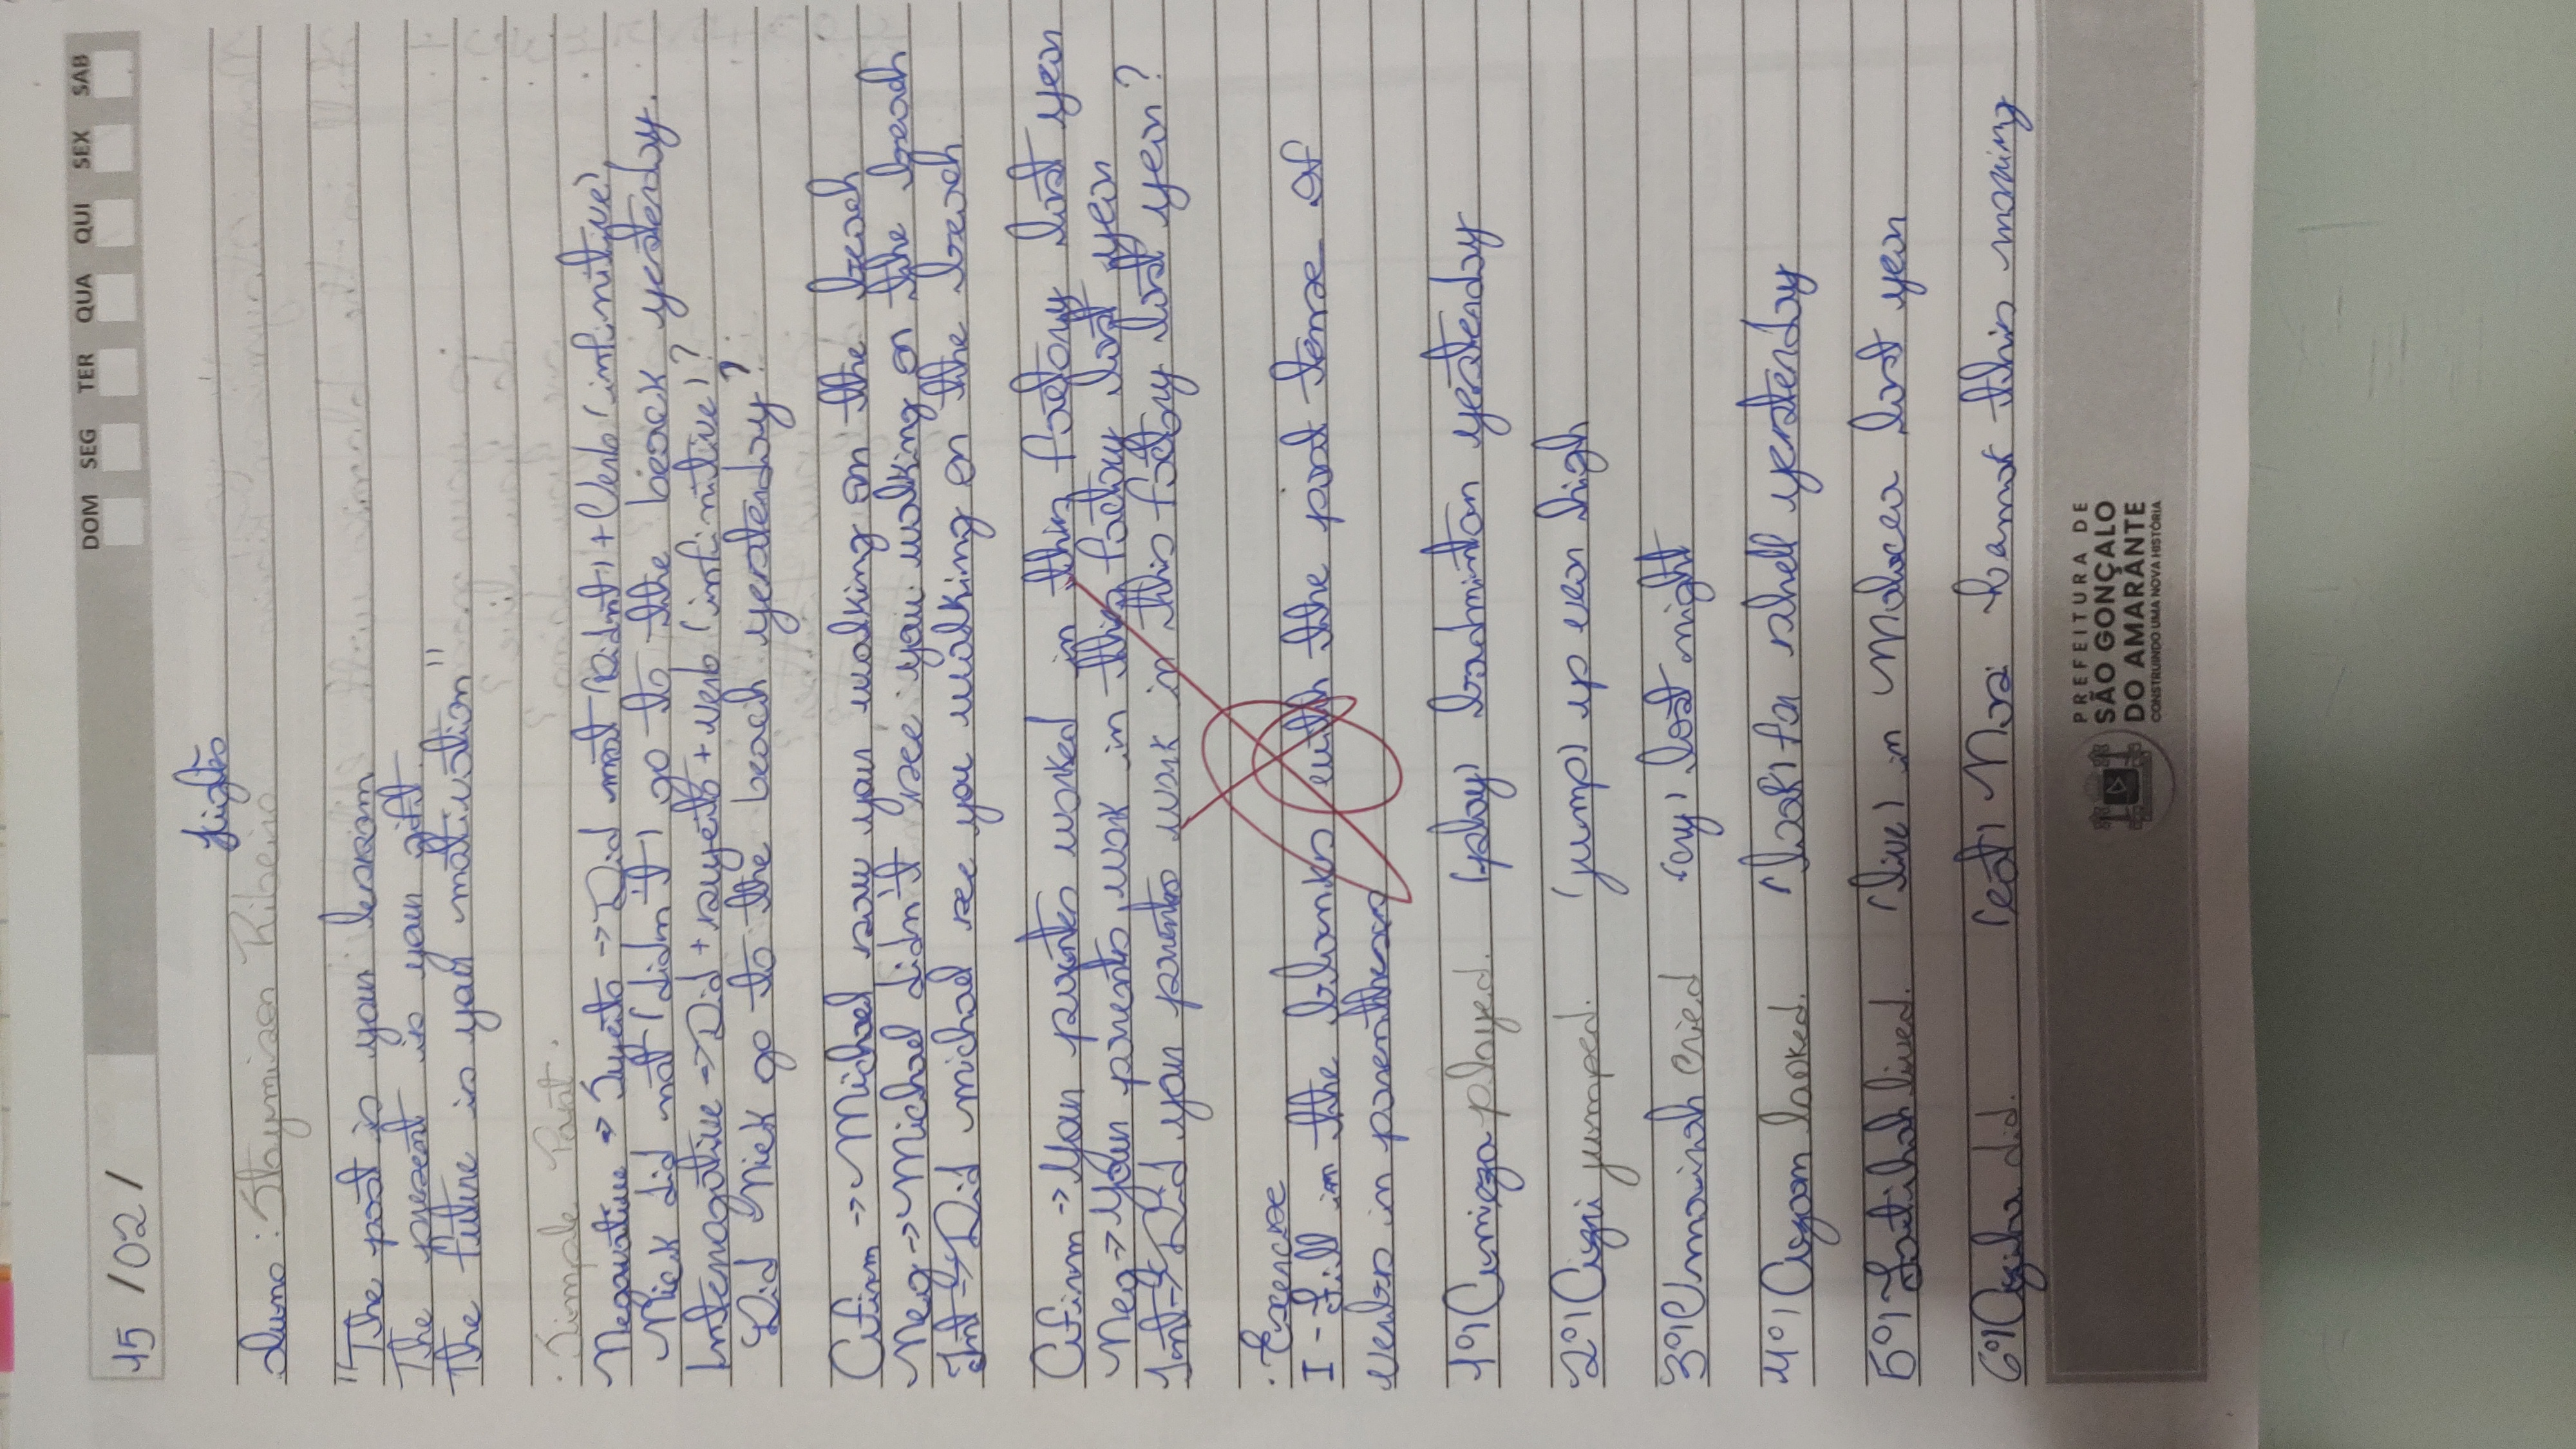 DOM SEG TER QUA QUI SEX SAB
15 / 02 /
Aluno: Ribeiro
"The past is your lesson
The present is your gift
The future is your motivation"
. Simple Past.
Negative → Sujeito → Did not (Didnt) + Verb (infinitive)
Nick did not (didn't) go to the beack yesterday.
Interrogative → Did + sujeito + verb (infinitive)?
Did Nick go to the beach yesterday?
Afirm → Michael saw you walking on the beach
Neg → Michael didn't see you walking on the beach
Int → Did michael see you walking on the beach
Afirm → Your parents worked in this factory last year
Neg → Your parents work in this factory last year
Int → Did your parents work in this factory last year?
. Exercise
I - Fill in the blanks with the past tense of
verbs in parentheses
1º) played. (play) badminton yesterday
2º) jumped. (jump) up high
3º) cried (cry) last night
4º) looked. (look) for shell yesterday
5º) lived. (live) in last year
6º) did. (eat) this morning
PREFEITURA DE
SÃO GONÇALO
DO AMARANTE
CONSTRUINDO UMA NOVA HISTÓRIA